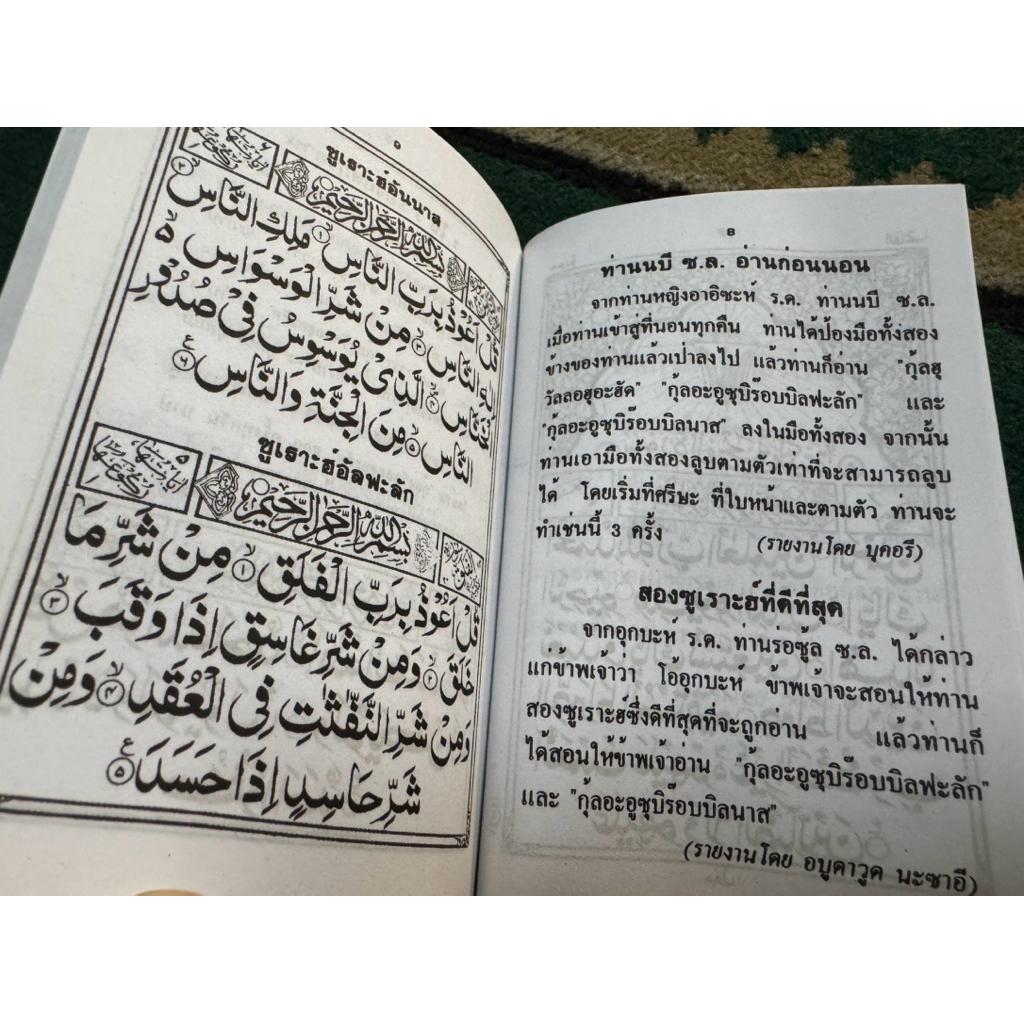 8
ท่านนบี ซ.ล. อ่านก่อนนอน
จากท่านหญิงอาอิซะห์ ร.ด. ท่านนบี ซ.ล.
เมื่อท่านเข้าสู่ที่นอนทุกคืน ท่านได้ป้องมือทั้งสอง
ข้างของท่านแล้วเป่าลงไป แล้วท่านก็อ่าน "กุ้ลฮุ
วัลลอฮุอะฮัด" "กุ้ลอะอูซุบิร๊อบบิลฟะลัก" และ
"กุ้ลอะอูซุบิร๊อบบิลนาส" ลงในมือทั้งสอง จากนั้น
ท่านเอามือทั้งสองลูบตามตัวเท่าที่จะสามารถลูบ
ได้ โดยเริ่มที่ศรีษะ ที่ใบหน้าและตามตัว ท่านจะ
ทำเช่นนี้ 3 ครั้ง (รายงานโดย บุคอรี)
สองซูเราะฮ์ที่ดีที่สุด
จากอุกบะห์ ร.ด. ท่านร่อซู้ล ซ.ล. ได้กล่าว
แก่ข้าพเจ้าว่า โอ้อุกบะห์ ข้าพเจ้าจะสอนให้ท่าน
สองซูเราะฮ์ซึ่งดีที่สุดที่จะถูกอ่าน แล้วท่านก็
ได้สอนให้ข้าพเจ้าอ่าน "กุ้ลอะอูซุบิร๊อบบิลฟะลัก"
และ "กุ้ลอะอูซุบิร๊อบบิลนาส"
(รายงานโดย อบูดาวูด นะซาอี)
9
ซูเราะฮ์อันนาส
بِسْمِ اللهِ الرَّحْمٰنِ الرَّحِيْمِ
قُلْ اَعُوْذُ بِرَبِّ النَّاسِ ۱ مَلِكِ النَّاسِ ۲
اِلٰهِ النَّاسِ ۳ مِنْ شَرِّ الْوَسْوَاسِ ۵
الْخَنَّاسِ ۴ الَّذِىْ يُوَسْوِسُ فِىْ صُدُوْرِ
النَّاسِ ۵ مِنَ الْجِنَّةِ وَالنَّاسِ ۶
ซูเราะฮ์อัลฟะลัก
بِسْمِ اللهِ الرَّحْمٰنِ الرَّحِيْمِ
قُلْ اَعُوْذُ بِرَبِّ الْفَلَقِ ۱ مِنْ شَرِّ مَا
خَلَقَ ۲ وَمِنْ شَرِّ غَاسِقٍ اِذَا وَقَبَ ۳
وَمِنْ شَرِّ النَّفّٰثٰتِ فِى الْعُقَدِ ۴ وَمِنْ
شَرِّ حَاسِدٍ اِذَا حَسَدَ ۵